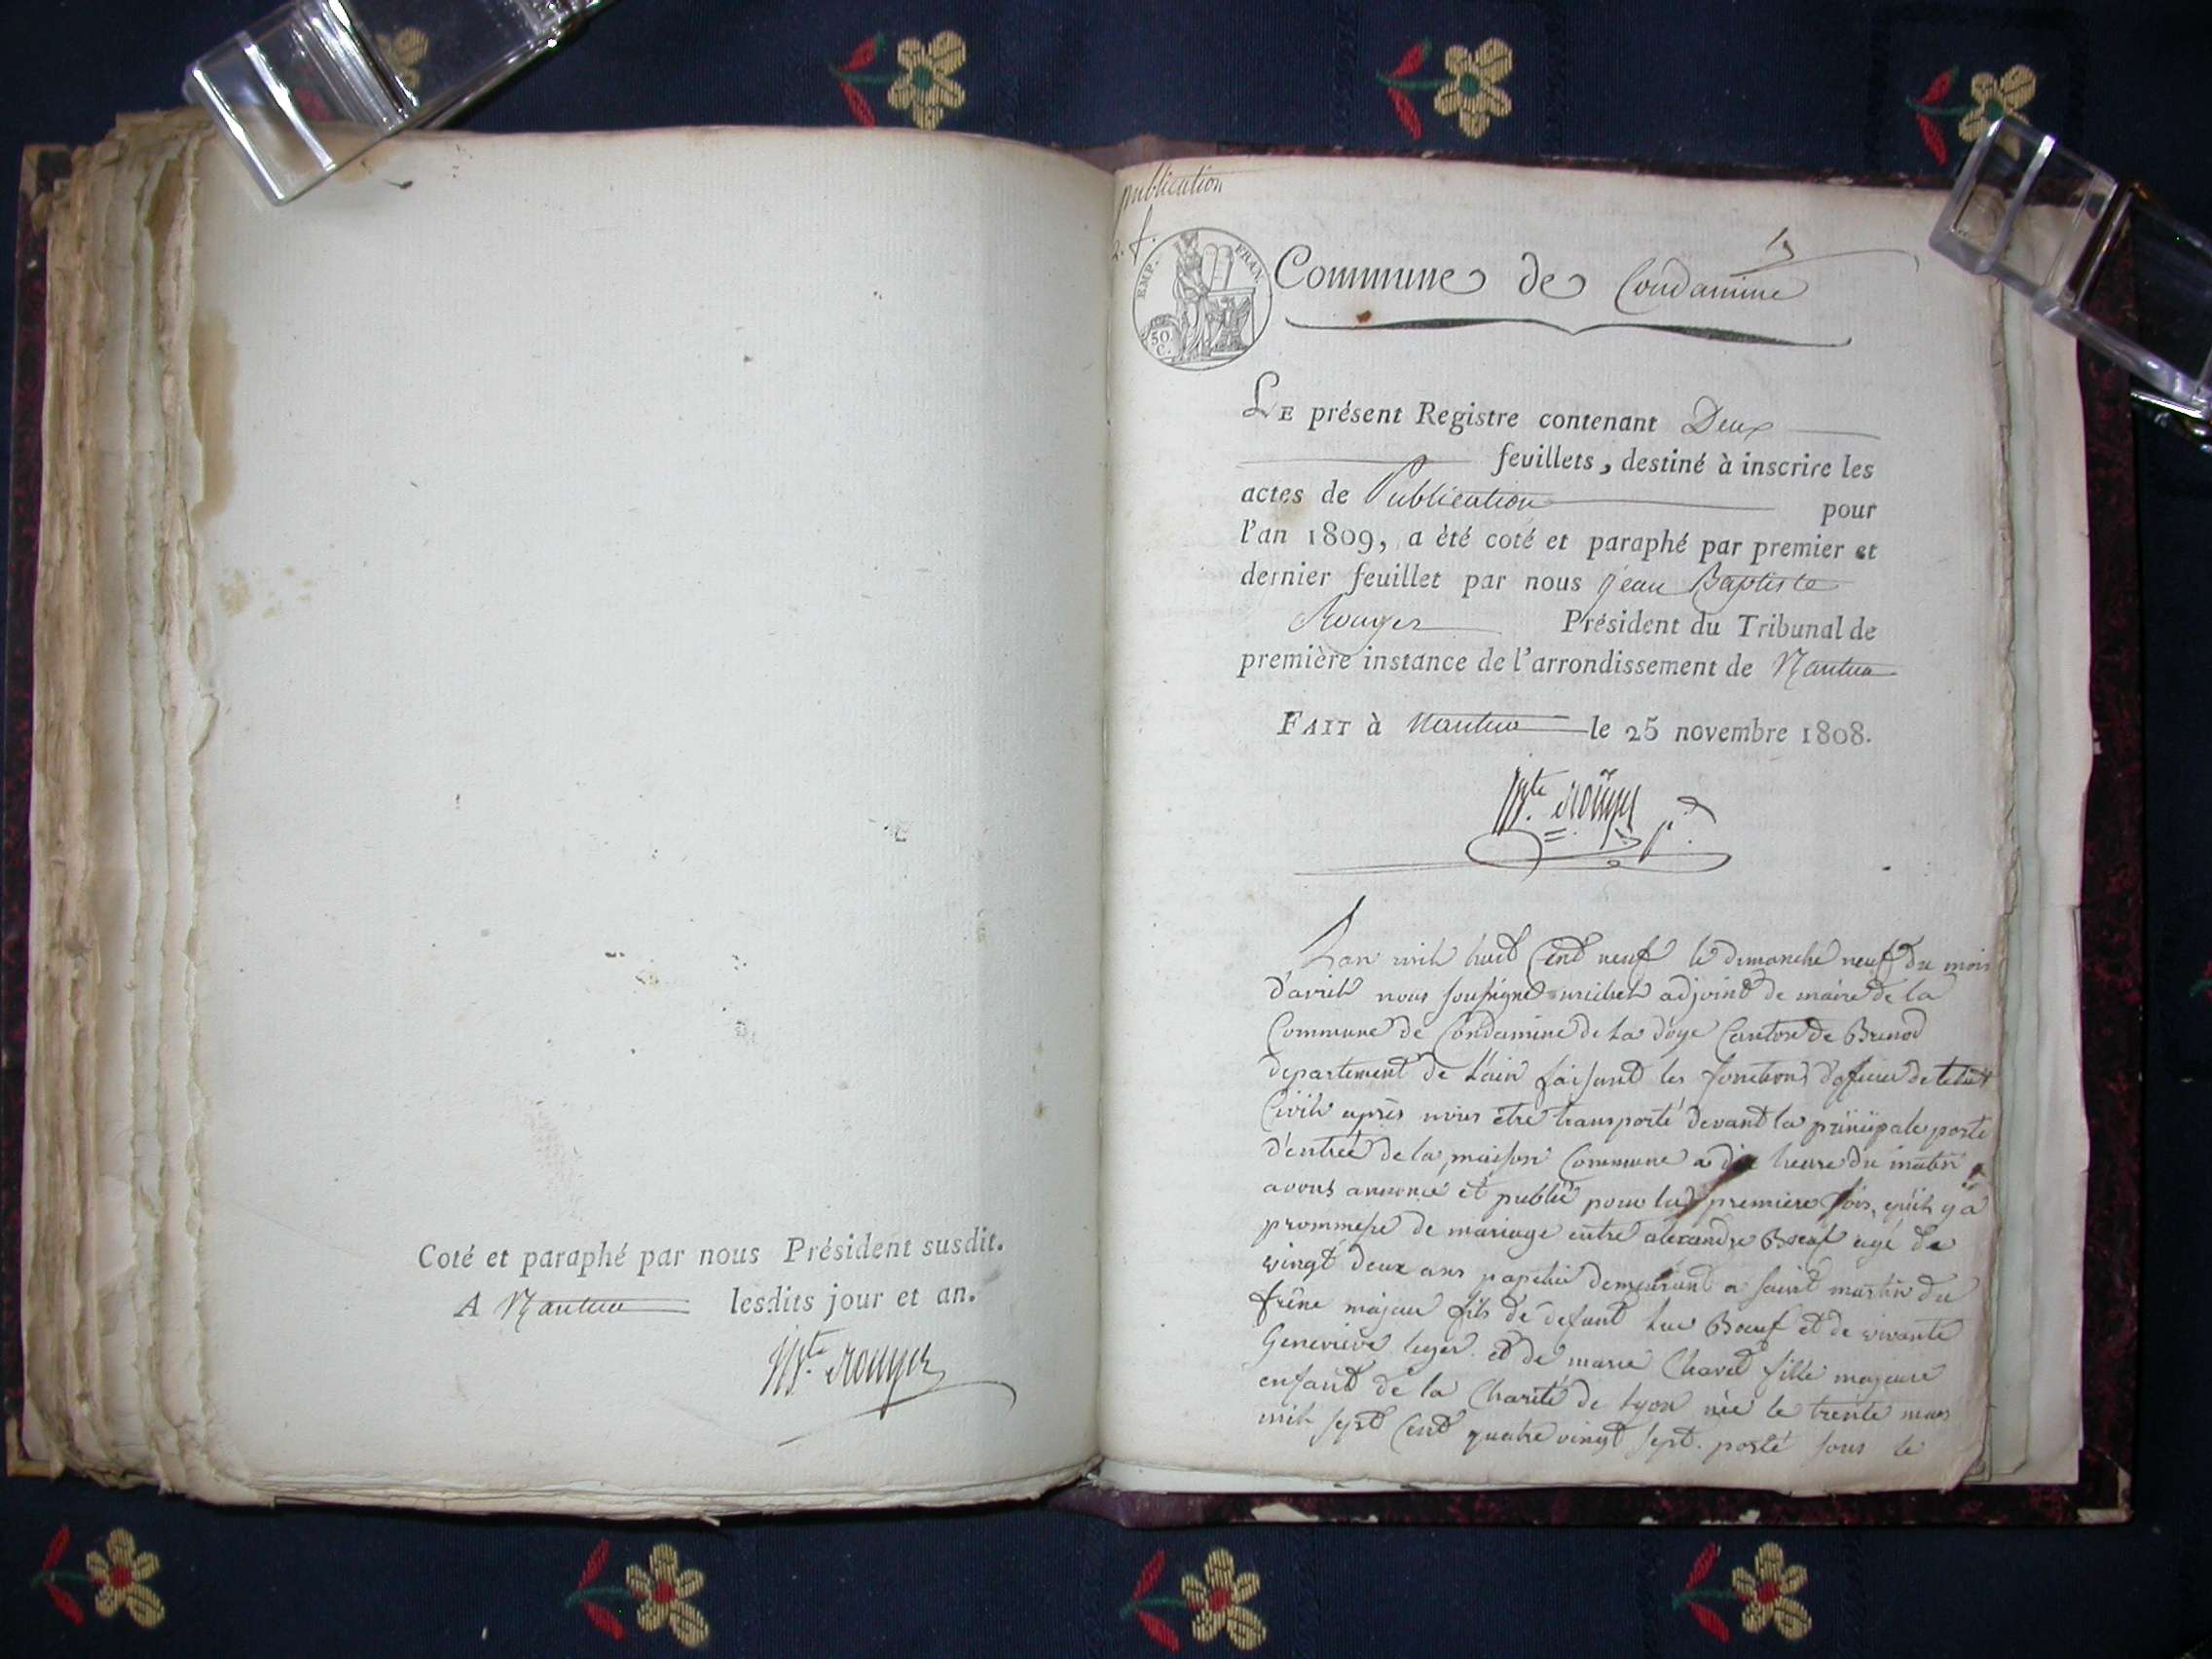 Coté et paraphé par nous Président susdit.
A Nantua lesdits jour et an.
Bte. Rouyer
publication
2. f.
EMP. FRAN.
50 C.
Commune de Condamine
LE présent Registre contenant Deux
feuillets, destiné à inscrire les
actes de Publication pour
l'an 1809, a été coté et paraphé par premier et
dernier feuillet par nous Jean Baptiste
Rouyer Président du Tribunal de
première instance de l'arrondissement de Nantua
FAIT à Nantua le 25 novembre 1808.
Bte. Rouyer
Lan mil huit Cent neuf le dimanche neuf du mois
d'avril nous soussigné michel adjoint de maire de la
Commune de Condamine de la doye Canton de Brenod
departement de Lain faisant les fonctions dofficier de letat
Civil après nous être transporté devant la principale porte
d'entrée de la maison Commune a dix heure du matin
avons annoncé et publié pour la première fois, qu'il y a
prommesse de mariage entre alexandre Boeuf agé de
vingt deux ans papetier demeurant a saint martin du
frêne majeur fils de defunt Luc Boeuf et de vivante
Geneviève leger et de marie Chavel fille majeure
enfant de la Charité de Lyon née le trente mars
mil sept Cent quatre vingt sept. porté sous le